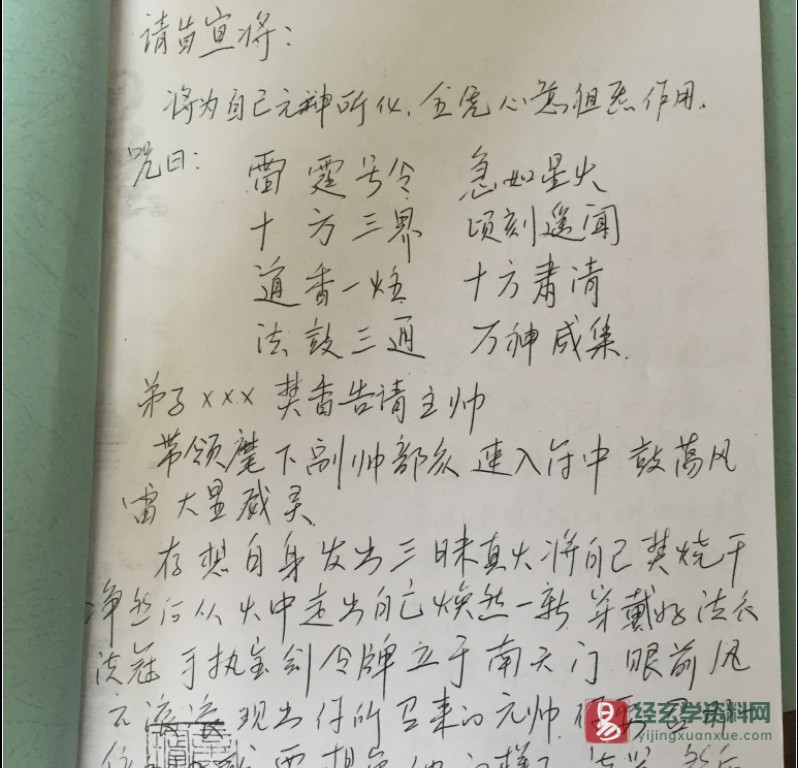 请旨宣将：
将为自己元神所化，全凭心意祖炁作用。
咒曰：
雷霆号令 急如星火
十方三界 顷刻遥闻
道香一炷 十方肃清
法鼓三通 万神咸集.
弟子xxx 焚香告请主帅
带领麾下副帅部众 速入符中 鼓荡风
雷大显威灵
存想自身发出三昧真火将自己焚烧干
净然后从火中走出自己焕然一新 穿戴好法衣
法冠 手执宝剑令牌立于南天门 眼前风
云滚滚 现出你所召来的元帅
要想
经玄学资料网
yijingxuanxue.com